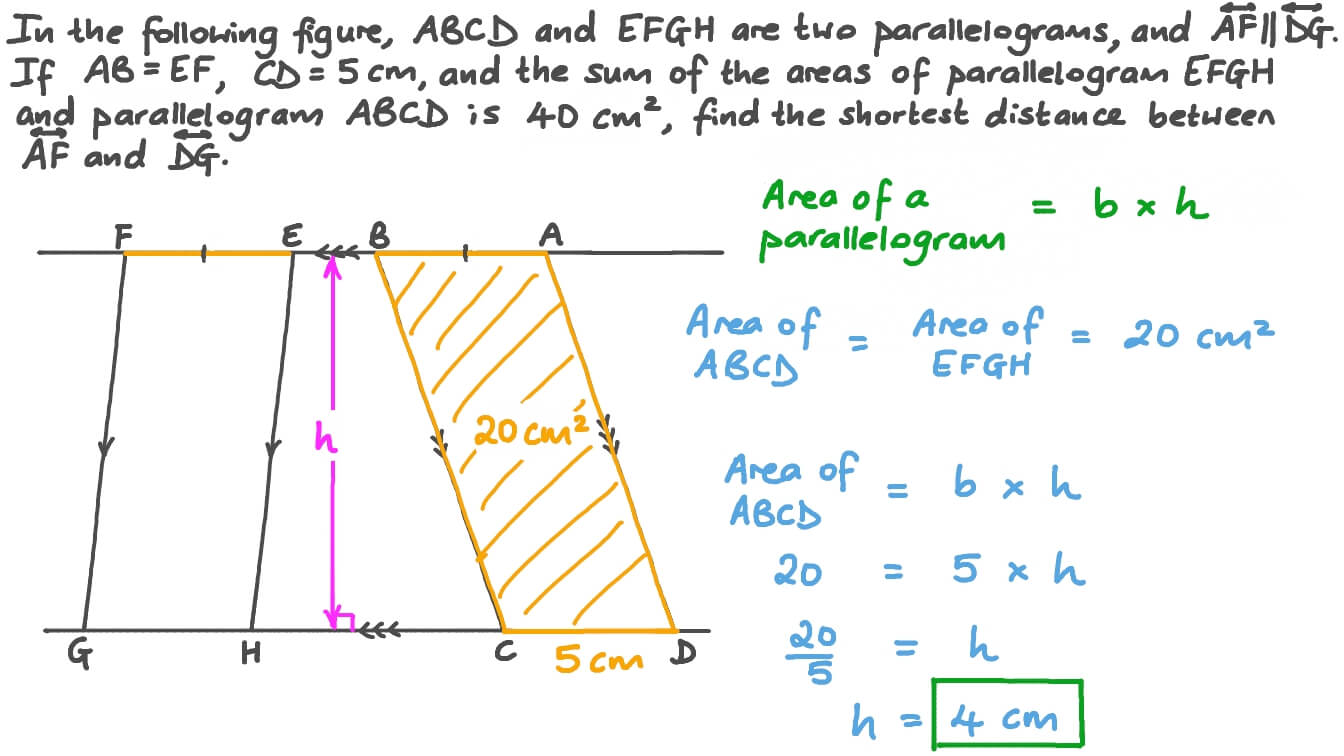 In the following figure, ABCD and EFGH are two parallelograms, and AF || DG.
If AB = EF, CD = 5 cm, and the sum of the areas of parallelogram EFGH
and parallelogram ABCD is 40 cm², find the shortest distance between
AF and DG.
Area of a parallelogram = b × h
F E B A
Area of ABCD = Area of EFGH = 20 cm²
h
20 cm²
Area of ABCD = b × h
20 = 5 × h
20/5 = h
G H C 5 cm D
h = 4 cm